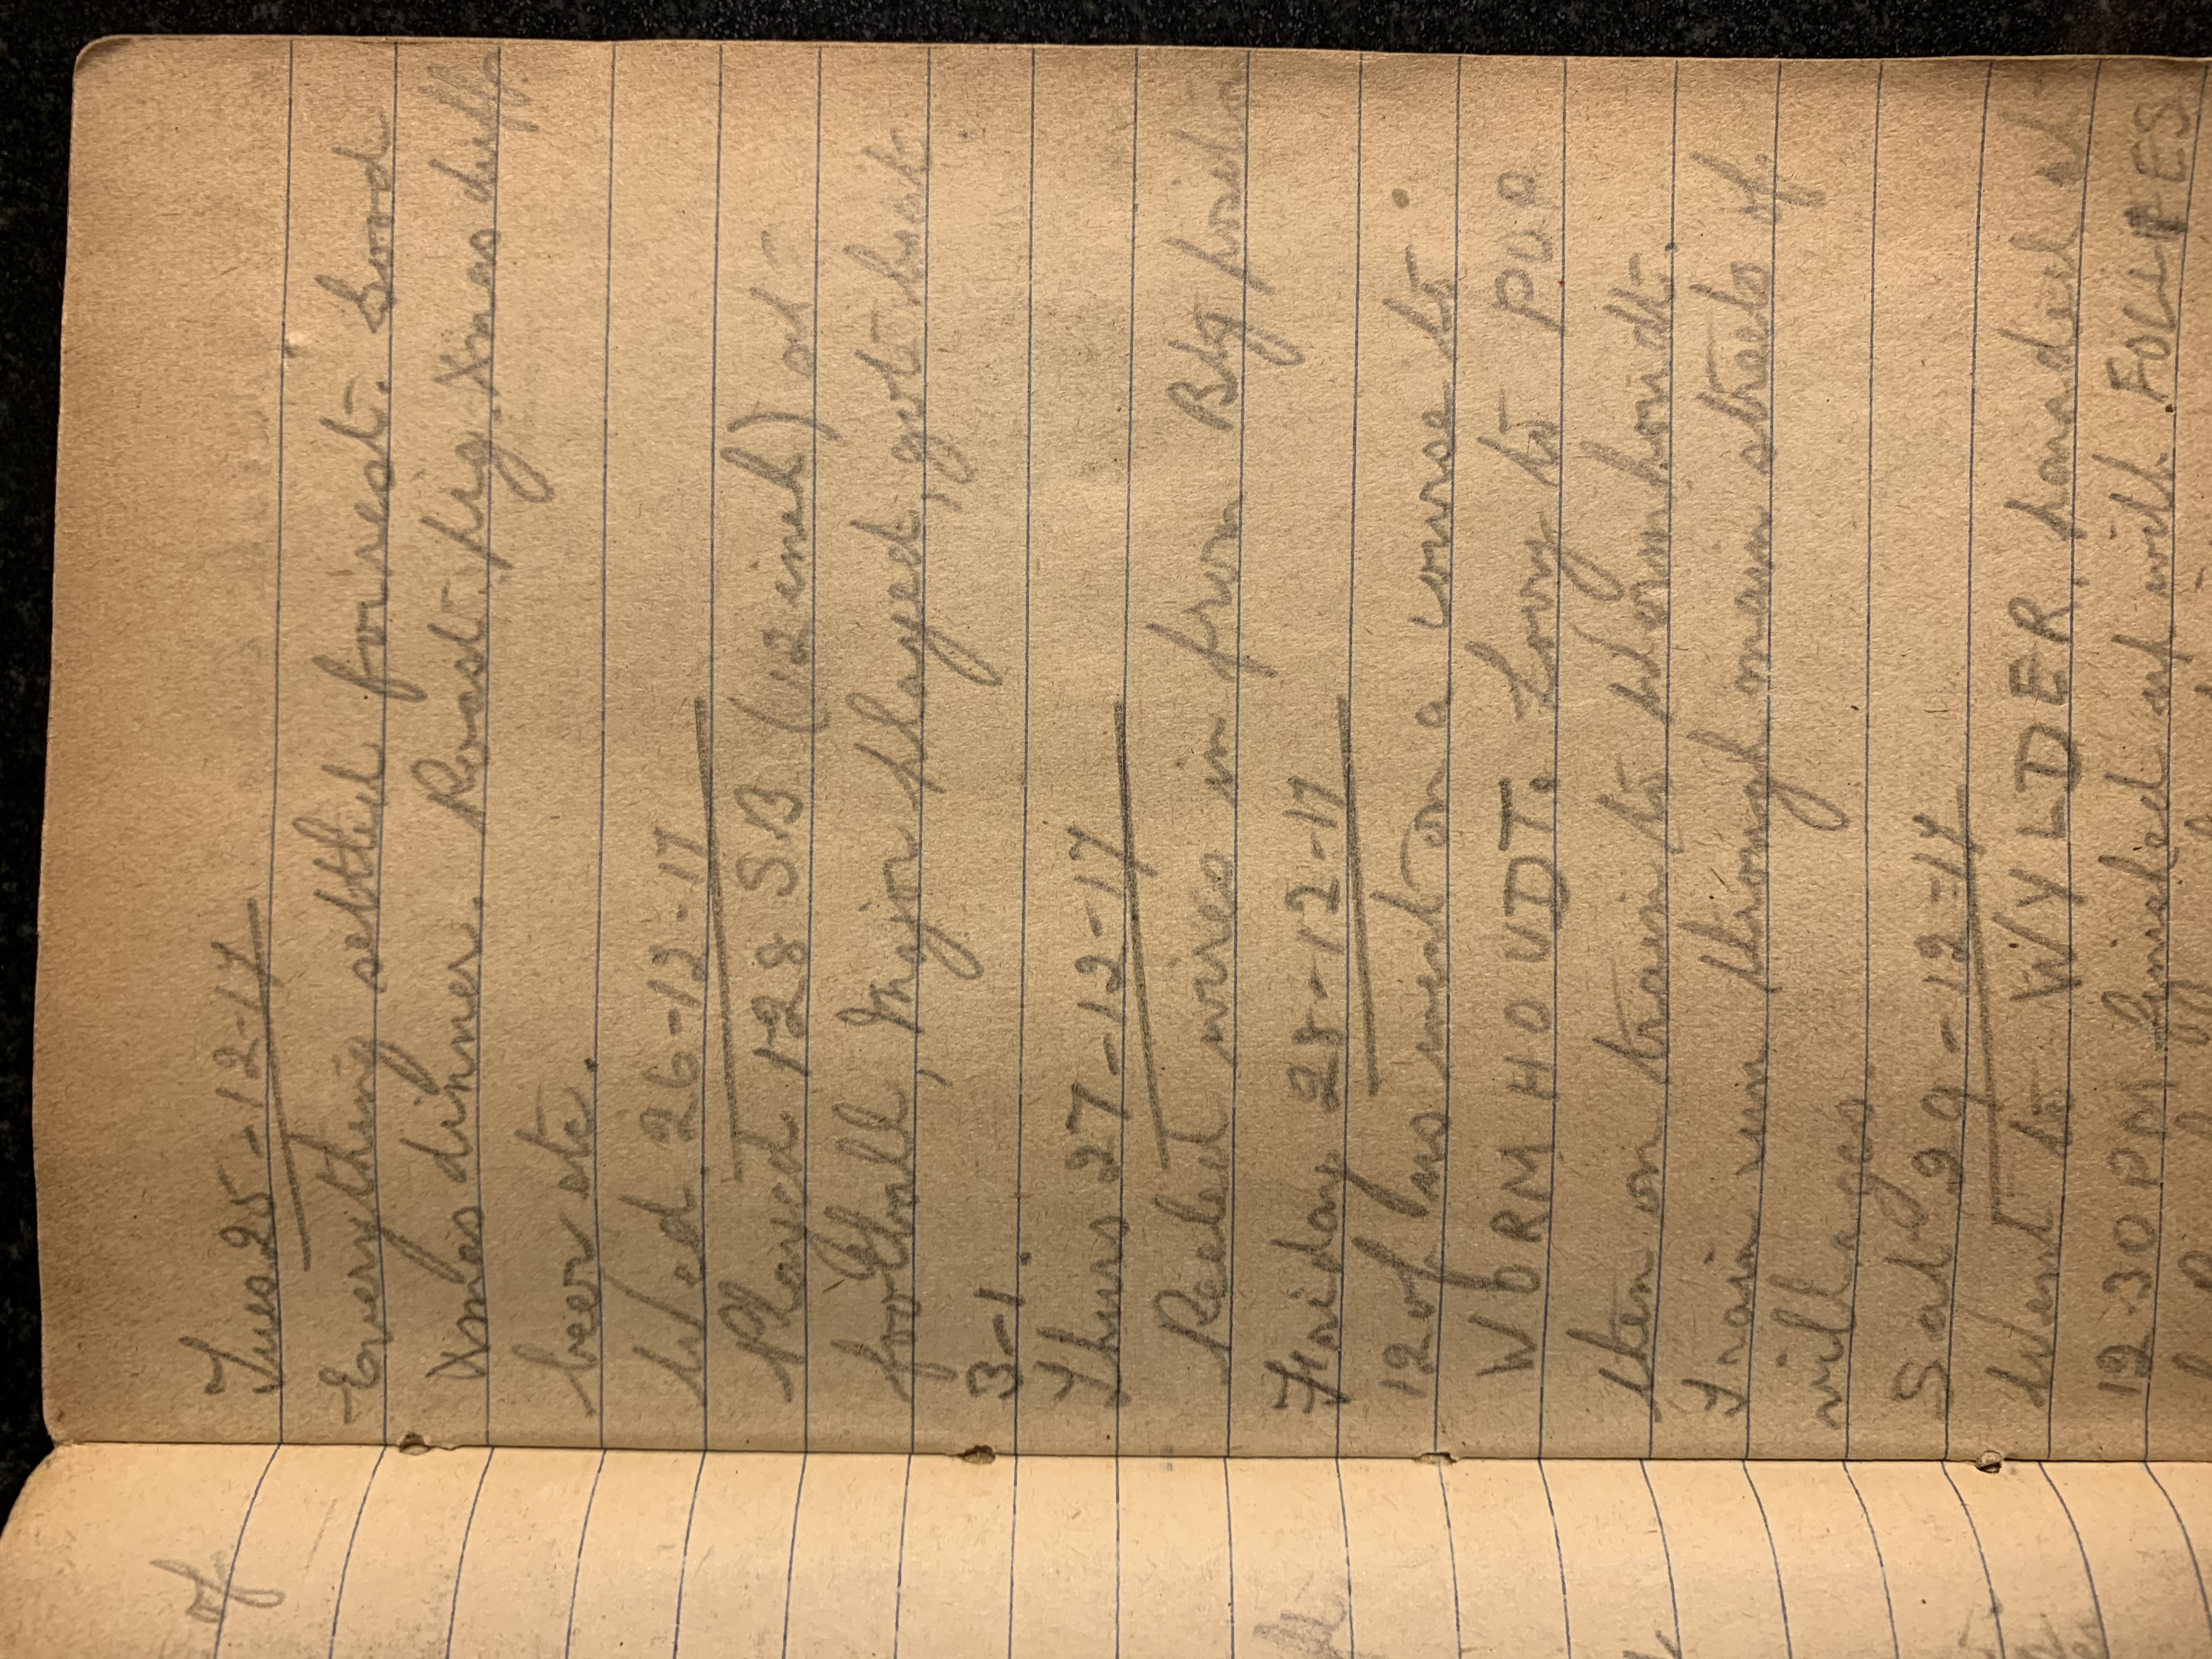 of
Tues 25-12-17
Everything settled for rest. Good
Xmas dinner. Roast pig. Xmas duff
beer etc.
Wed. 26-12-17
Played 128 S.B (12 inch) at
football, Major played, got beat
3-1.
Thurs 27-12-17
Reeled wires in from Btg posit
Friday 28-12-17
12 of us went on a course to
WORMHOUDT. Lorry to POP
then on train to Wormhoudt.
Train run through main streets of
villages.
Sat 29-12-17
Went to WYLDER, handed
12.30 PM finished up with FOLLIES